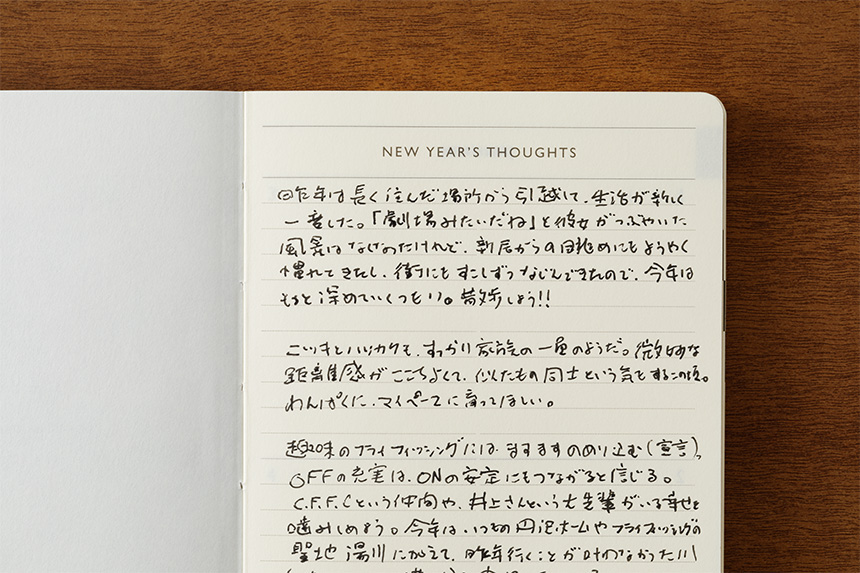 NEW YEAR'S THOUGHTS
昨年は長く住んだ場所から引越して、生活が新しく
一変した。「劇場みたいだね」と彼女がつぶやいた
風景はなくなったけれど、新居からの眺めにもようやく
慣れてきたし、街にもすこしずつなじんできたので、今年は
もっと深めていくつもり。散歩しよう!!
こツキとハツカクも、すっかり家族の一員のようだ。微妙な
距離感がここちよくて、似たもの同士という気もするこの頃。
わんぱくに、マイペースに育ってほしい。
趣味のフライフィッシングには、ますますのめり込む(宣言)。
OFFの充実は、ONの安定にもつながると信じる。
C.F.F.Cという仲間や、井上さんという大先輩がいる幸せを
噛みしめよう。今年は、いつもの円沢ホームやフライフィッシングの
聖地 湯川にかえて、昨年行くことが叶わなかった川